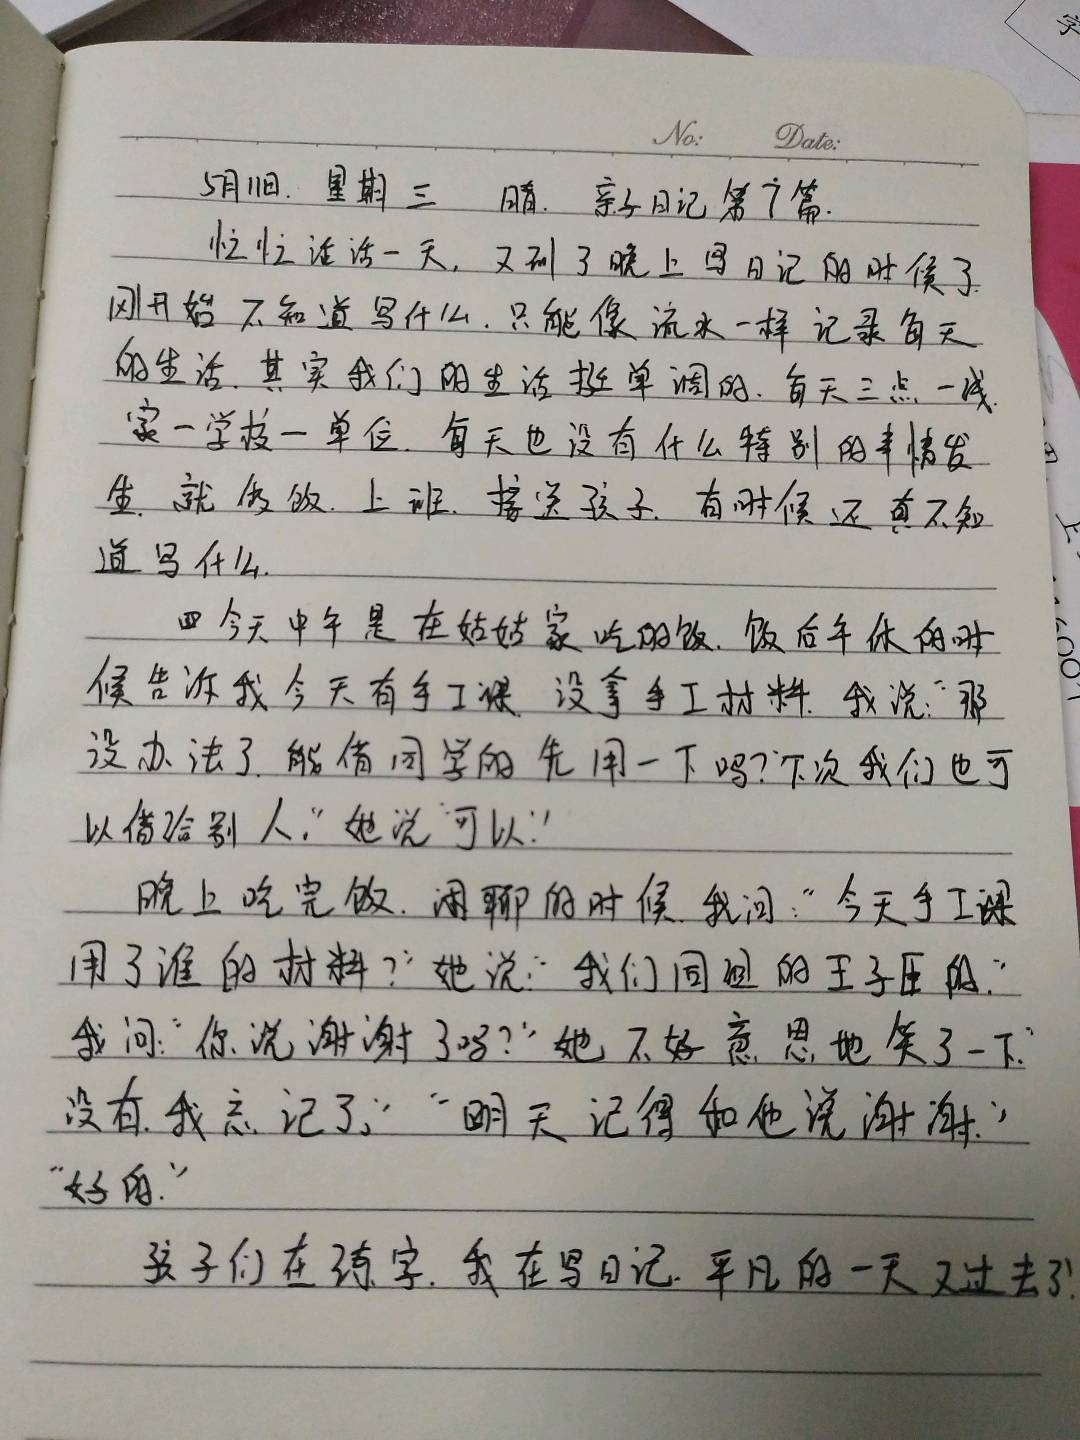 No: Date:
5月11日. 星期三 晴. 亲子日记第7篇.
忙忙活活一天, 又到了晚上写日记的时候了.
刚开始不知道写什么. 只能像流水一样记录每天
的生活. 其实我们的生活挺单调的. 每天三点一线.
家一学校一单位. 每天也没有什么特别的事情发
生. 就做饭. 上班. 接送孩子. 有时候还真不知
道写什么.
四今天中午是在姑姑家吃的饭. 饭后午休的时
候告诉我今天有手工课. 没拿手工材料. 我说:"那
没办法了. 能借同学的先用一下吗?下次我们也可
以借给别人."她说"可以."
晚上吃完饭. 闲聊的时候. 我问:"今天手工课
用了谁的材料?"她说:"我们同组的王子臣的."
我问:"你说谢谢了吗?"她不好意思地笑了一下."
没有. 我忘记了." "明天记得和他说谢谢."
"好的."
孩子们在练字. 我在写日记. 平凡的一天又过去了!
字